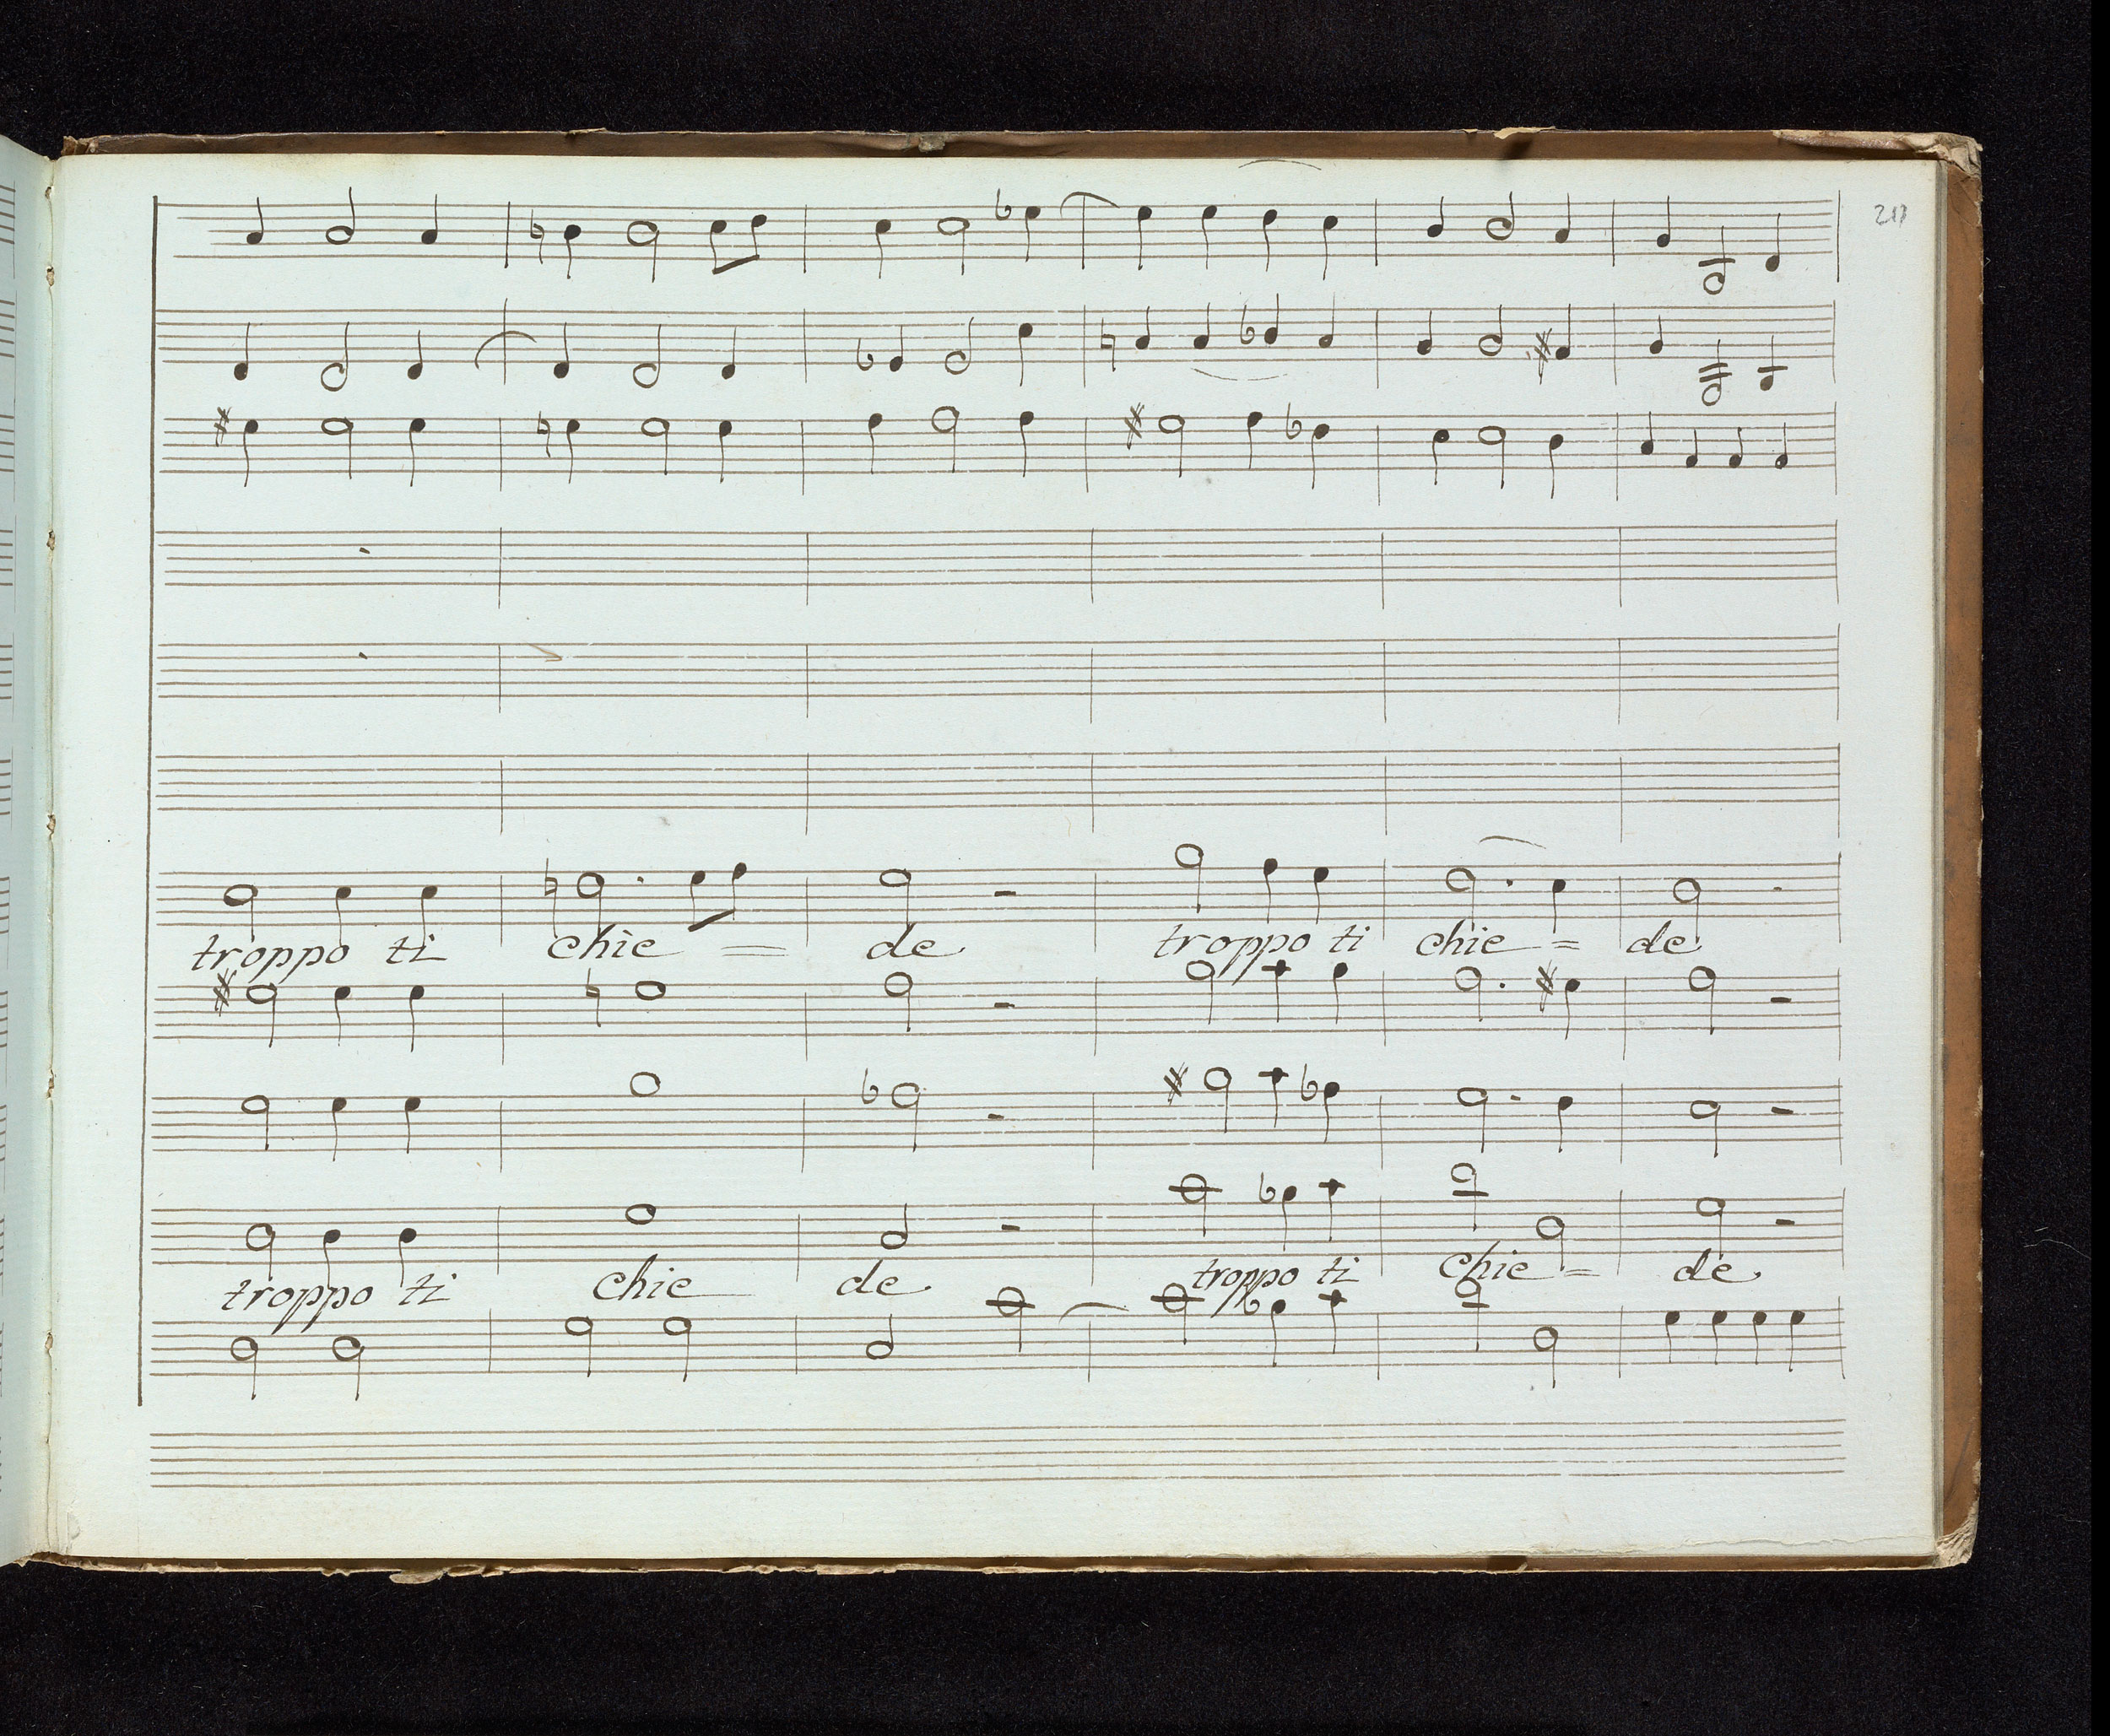 troppo ti chie = de troppo ti chie = de
troppo ti chie de troppo ti chie = de